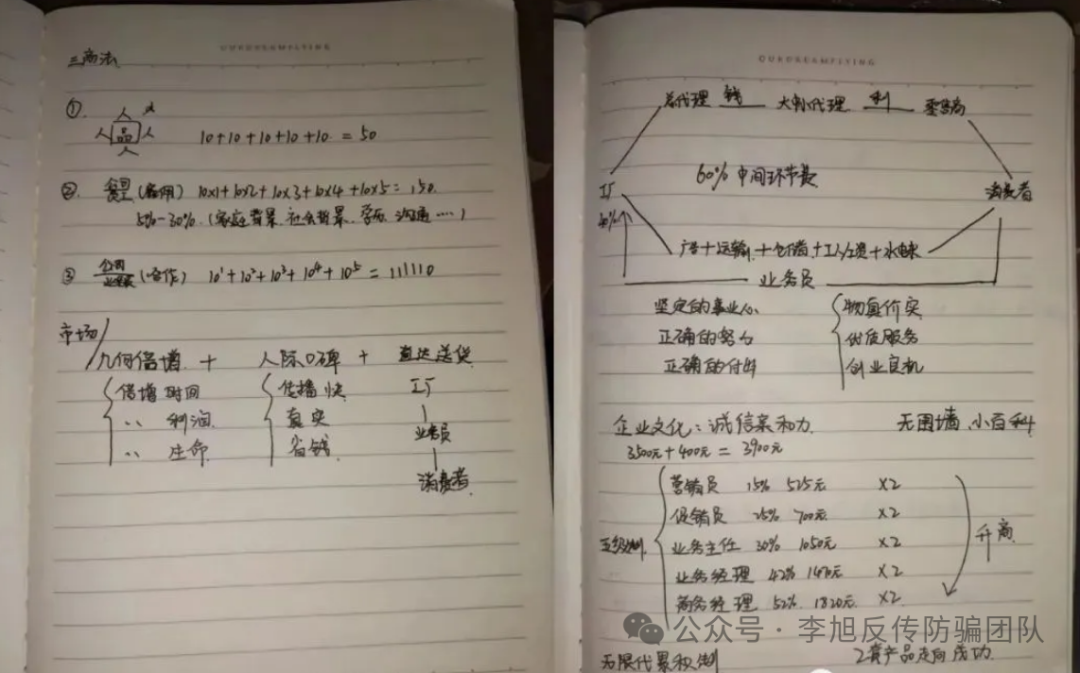 OUROREAMFLYING
三商法
①. 人 人
人 品 人 10+10+10+10+10=50
人
②. (备用) 10x1+10x2+10x3+10x4+10x5=150.
5%-30%.(家庭背景.社会背景.学历.沟通……)
③ 公司 (合作) 10¹+10²+10³+10⁴+10⁵=111110
市场/几何倍增 + 人际口碑 + 直达送货
倍增时间 传播快 工厂
〃 利润 真实 业务员
〃 生命 省钱 消费者
OUROREAMFLYING
总代理 钱 大中小代理 利 零售商
工厂 60%中间环节费 消费者
40%
广告+运输+仓储+工人工资+水电
业务员
坚定的事业心 物真价实
正确的努力 优质服务
正确的付出 创业良机
企业文化:诚信亲和力. 无围墙.小百科
3500元+400元=3900元
五级制
营销员 15% 525元 X2
促销员 25% 700元 X2
业务主任 30% 1050元 X2
业务经理 42% 1470元 X2
商务经理 52% 1820元 X2
升商
无限代累积制 2套产品走向成功.
公众号·李旭反传防骗团队